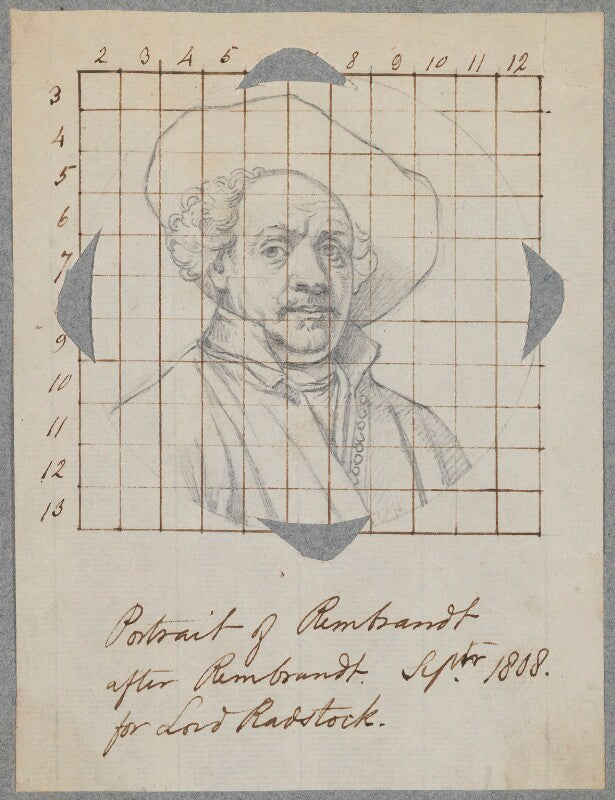 2 3 4 5 8 9 10 11 12
3
4
5
6
7
9
10
11
12
13
Portrait of Rembrandt
after Rembrandt. Septr. 1808.
for Lord Radstock.